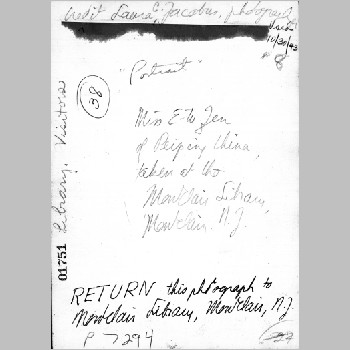 Credit Laura C. Jacobus, photographer
Used
10/30/43
8
"Portrait"
38
Miss E-Tu Zen
of Peiping China,
taken at the
Montclair Library,
Montclair, N.J.
Library, Visitors
01751
RETURN this photograph to
Montclair Library, Montclair, N.J.
P 7294